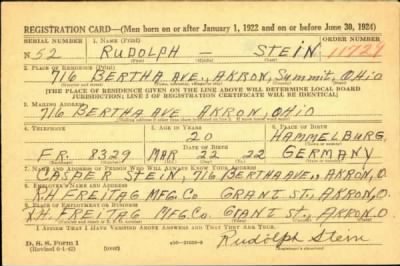 REGISTRATION CARD—(Men born on or after January 1, 1922 and on or before June 30, 1924)
SERIAL NUMBER 1. NAME (Print) ORDER NUMBER
N 52 RUDOLPH — STEIN 11729
(First) (Middle) (Last)
2. PLACE OF RESIDENCE (Print)
716 BERTHA AVE., AKRON, Summit, OHIO
(Number and street) (Town, township, village, or city) (County) (State)
[THE PLACE OF RESIDENCE GIVEN ON THE LINE ABOVE WILL DETERMINE LOCAL BOARD
JURISDICTION; LINE 2 OF REGISTRATION CERTIFICATE WILL BE IDENTICAL]
3. MAILING ADDRESS
716 BERTHA AVE AKRON, OHIO
[Mailing address if other than place indicated on line 2. If same insert word same]
4. TELEPHONE 5. AGE IN YEARS 6. PLACE OF BIRTH
20 HAMMELBURG
DATE OF BIRTH
FR. 8329 MAR 22 22 GERMANY
(Exchange) (Number) (Mo.) (Day) (Yr.) (State or country)
7. NAME AND ADDRESS OF PERSON WHO WILL ALWAYS KNOW YOUR ADDRESS
CASPER STEIN 716 BERTHA AVE., AKRON, O.
8. EMPLOYER'S NAME AND ADDRESS
K.H. FREITAG MFG. CO GRANT ST., AKRON, O.
9. PLACE OF EMPLOYMENT OR BUSINESS
K.H. FREITAG MFG. Co GRANT ST., AKRON O.
I AFFIRM THAT I HAVE VERIFIED ABOVE ANSWERS AND THAT THEY ARE TRUE.
D. S. S. Form 1
(Revised 6-1-42) (over) Rudolph Stein
(Registrant's signature)